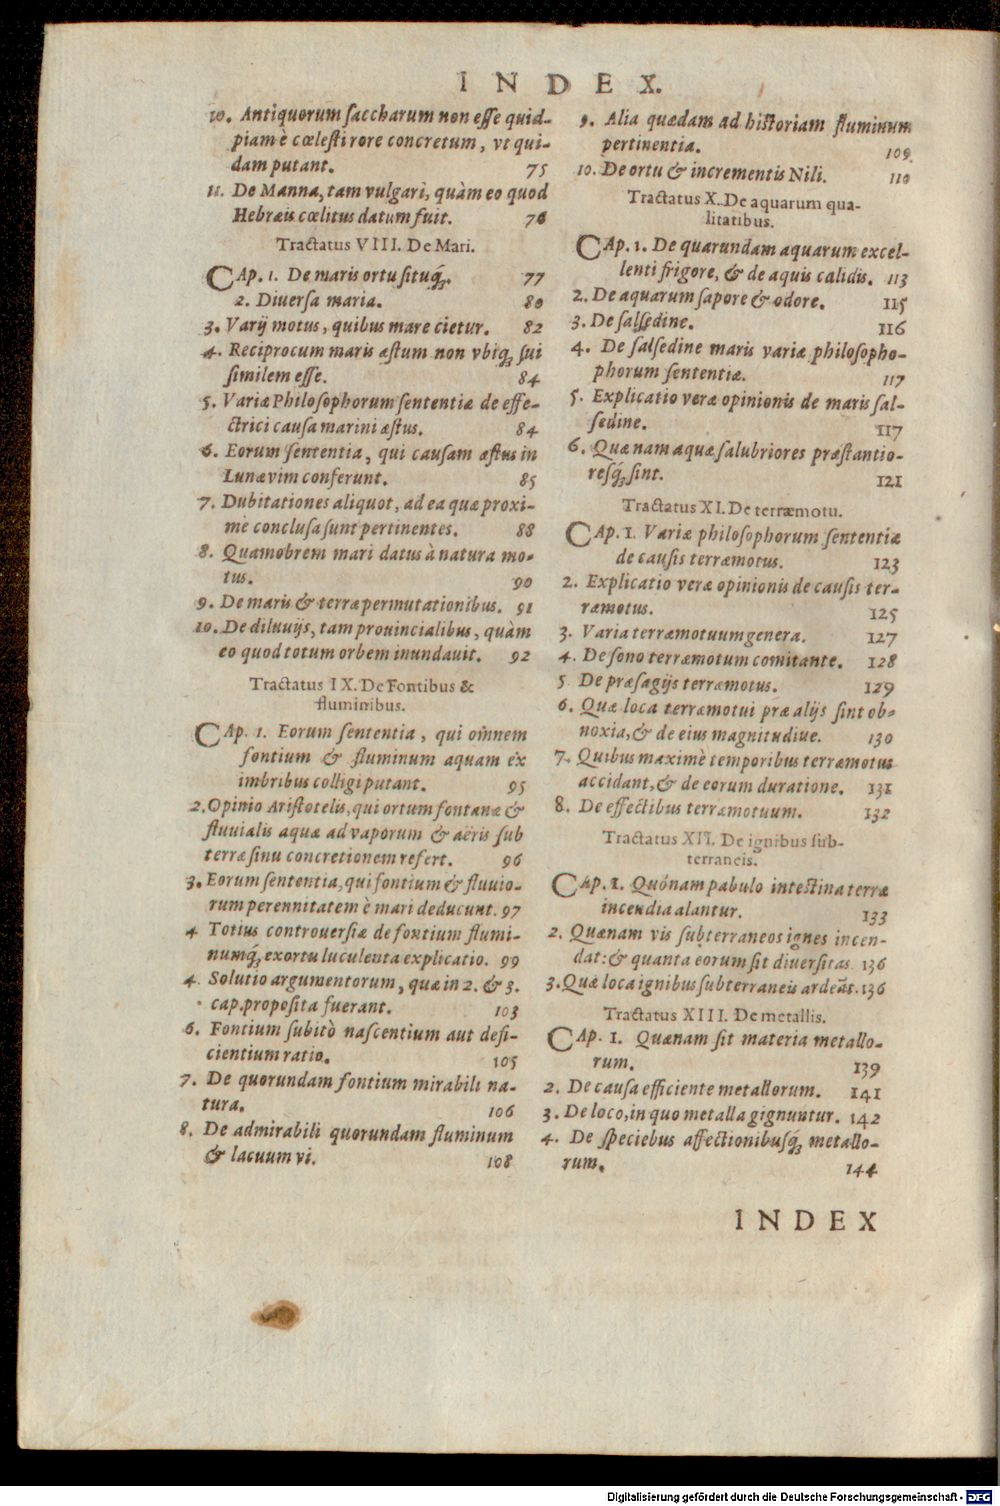 INDEX.
10. Antiquorum saccharum non esse quid-
piam è cœlesti rore concretum, vt qui-
dam putant. 75
11. De Manna, tam vulgari, quàm eo quod
Hebræis cœlitus datum fuit. 76
Tractatus VIII. De Mari.
CAp. 1. De maris ortu situq́;. 77
2. Diuersa maria. 80
3. Varij motus, quibus mare cietur. 82
4. Reciprocum maris æstum non vbiq; sui
similem esse. 84
5. Variæ Philosophorum sententiæ de effe-
ctrici causa marini æstus. 84
6. Eorum sententia, qui causam æstus in
Lunæ vim conferunt. 85
7. Dubitationes aliquot, ad ea quæ proxi-
mè conclusa sunt pertinentes. 88
8. Quamobrem mari datus à natura mo-
tus. 90
9. De maris & terræ permutationibus. 91
10. De diluuijs, tam prouincialibus, quàm
eo quod totum orbem inundauit. 92
Tractatus IX. De Fontibus &
fluminibus.
CAp. 1. Eorum sententia, qui om̃nem
fontium & fluminum aquam ex
imbribus colligi putant. 95
2. Opinio Aristotelis, qui ortum fontanæ &
fluuialis aquæ ad vaporum & aëris sub
terræ sinu concretionem refert. 96
3. Eorum sententia, qui fontium & fluuio-
rum perennitatem è mari deducunt. 97
4 Totius controuersiæ de fontium flumi-
numq́; exortu luculenta explicatio. 99
4. Solutio argumentorum, quæ in 2. & 3.
cap. proposita fuerant. 103
6. Fontium subitò nascentium aut defi-
cientium ratio. 105
7. De quorundam fontium mirabili na-
tura. 106
8. De admirabili quorundam fluminum
& lacuum vi. 108
9. Alia quædam ad historiam fluminum
pertinentia. 109
10. De ortu & incrementis Nili. 110
Tractatus X. De aquarum qua-
litatibus.
CAp. 1. De quarundam aquarum excel-
lenti frigore, & de aquis calidis. 113
2. De aquarum sapore & odore. 115
3. De salsedine. 116
4. De salsedine maris variæ philosopho-
phorum sententiæ. 117
5. Explicatio veræ opinionis de maris sal-
sedine. 117
6. Quænam aquæ salubriores præstantio-
resq́; sint. 121
Tractatus XI. De terræmotu.
CAp. 1. Variæ philosophorum sententiæ
de causis terræmotus. 123
2. Explicatio veræ opinionis de causis ter-
ræmotus. 125
3. Varia terræmotuum genera. 127
4. De sono terræmotum comitante. 128
5 De præsagijs terræmotus. 129
6. Quæ loca terræmotui præ alijs sint ob-
noxia, & de eius magnitudine. 130
7. Quibus maximè temporibus terræmotus
accidant, & de eorum duratione. 131
8. De effectibus terræmotuum. 132
Tractatus XII. De ignibus sub-
terraneis.
CAp. 1. Quónam pabulo intestina terræ
incendia alantur. 133
2. Quænam vis subterraneos ignes incen-
dat: & quanta eorum sit diuersitas. 136
3. Quæ loca ignibus subterraneis ardeãt. 136
Tractatus XIII. De metallis.
CAp. 1. Quænam sit materia metallo-
rum. 139
2. De causa efficiente metallorum. 141
3. De loco, in quo metalla gignuntur. 142
4. De speciebus affectionibusq́; metallo-
rum. 144
INDEX
Digitalisierung gefördert durch die Deutsche Forschungsgemeinschaft - DFG